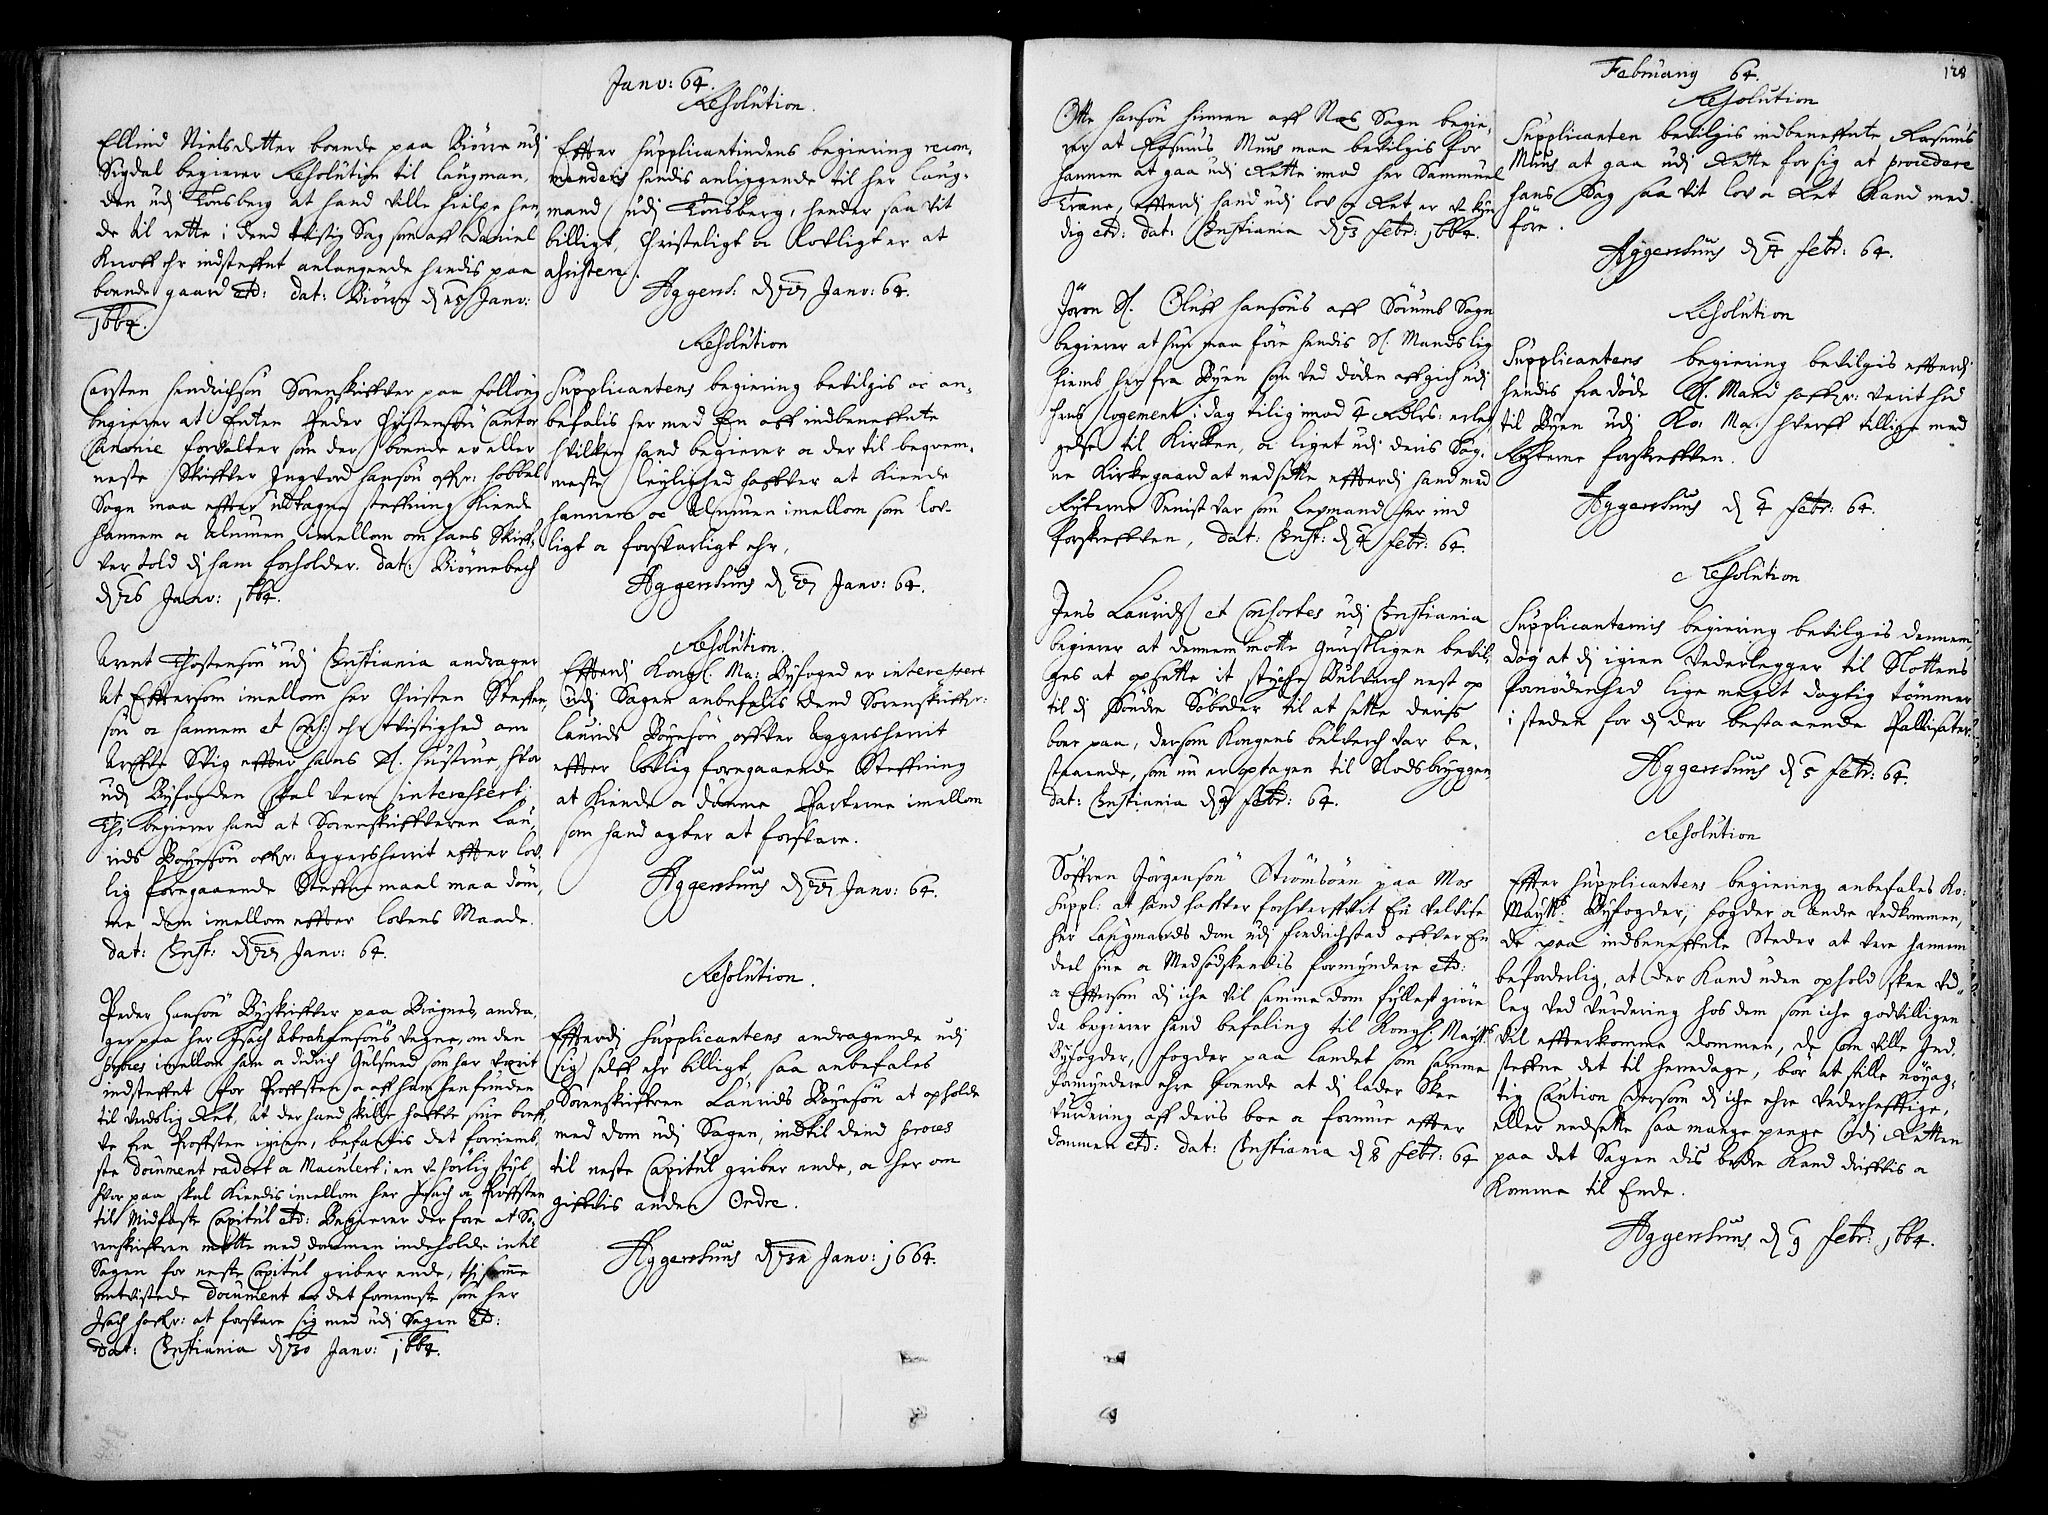 Janv: 64.
Ellind Nielsdatter boende paa Biörre udj
Sigdal begierer Resolution til laugman,
den udj Tonsberg at hand ville hielpe hen,
de til rette i dend tvistig Sag som aff Daniel
Knoff ehr indsteffnt anlangende hendis paa
boende gaard etc: dat: Biörre dend Janv:
1664.
Carsten Hendrichsön Sorenskriffver paa Folloug
begierer at Enten Peder Christensön Cantor
Canonie forvalter som der boende er eller
neste Skriffver Ingvord Hansön offr: Hobbel
Sogn maa effter udtagne steffning kiende
hannem oc Almuen imellom om hans Skriff,
ver told dj ham forholder. dat: Biörnebech
d 26 Janv: 1664.
Arent Thostensön udj Christiania andrager
At Effersom imellom her Christen Steffen,
sön oc hannem et Cons: ehr tvistighed om
Arffve Skig effter hans Sl. hustrue, hvor
udj Byfogden skal vere interessert.
Thj begierer hand at Sorenskriffveren Lau,
rids Boyesön offr: Aggersherrit effter lov,
lig foregaaende Steffnemaal maa döm,
me dem imellom effter lovens Maade.
dat: Christ: d Janv: 64.
Peder Hansön Byskriffver paa Bragnes, andra,
ger paa her Isach Abrahamsöns vegne, om den
proces imellom ham oc Didrich Gulsmed som har verit
indsteffnt for Proffsten oc aff ham henfunden
til Verdslig Ret, at der hand skulle haffve sine breff,
ve fra Proffsten igien, befandtis det fornemb,
ste Document radert oc Maculert i en uhörlig styl,
hvor paa skal kiendis imellom her Isach oc Proffsten
til Midfaste Capitul etc: Begierer derfore at So,
renskriffven motte med dommen indeholde intil
Sagen for neste Capitul griber ende, thj samme
omtvistede Document er det fornemste som her
Isach haffr: at forsvare sig med udj Sagen etc:
dat: Christiania d 30 Janv: 1664.
Resolution.
Effter Supplicantindens begiering recom,
menderis hendis anliggende til her Laug,
mand udj Tonsberg, hender saa vit
billigt, Christeligt oc Lovligt er at
assistere.
Aggersh: d Janv: 64.
Resolution
Supplicantens begiering bevilgis oc an,
befalis her med En aff indbeneffnte
hvilken hand begierer oc der til beqvem,
meste leylighed haffver at kiende
hannem oc Almuen imellom som lov,
ligt oc forsvarligt ehr,
Aggershuus d Janv: 64.
Resolution.
Efferdj Kongl: Ma: Byfoged er interessert
udj Sagen anbefalis dend Sorenskriffr:
Laurids Boyesön offver Aggersherrit
effter lovlig foregaaende Steffning
at kiende oc dömme Parterne imellom
som hand agter at forsvare.
Aggershuus d Janv: 64.
Resolution.
Efferdj Supplicantens andragende udj
sig selff ehr billigt, saa anbefales
Sorenskriffren Laurids Boyesön at opholde
med dom udj Sagen, indtil dend proces
til neste Capitul griber ende, oc her om
giffvis anden Ordre.
Aggershuus d Janv: 1664.
Februarij 64.
128
Otte Hansön Human aff Nes Sogn begie,
rer at Rasmus Muus maa bevilgis for
hannem at gaa udj Rette imod her Sammuel
Trane, effterdj hand udj lov oc Ret er ukyn
dig etc: dat: Christiania d 3 Febr: 1664.
Jören Sl. Oluff Hansöns aff Sörumb Sogn
begierer at hun maa före hendis Sl. Mands lig
hiemb her fra Byen som ved döden affgich udj
hans logement i dag tilig imod 4 Rdlrs: erleg,
gelse til Kirken, oc liget udj deris Sog,
ne Kirkegaard at nedsette effterdj hand med
Rytterne Senist var som Legmand her ind
forskreffven, dat: Christ: d 4 Febr: 64.
Jens Lauridz et Consortes udj Christiania
begierer at dennem motte gunstligen bevil,
ges at opsette it stycke Bulverch nest op
til dj söndre Söboder til at sette deris
boer paa, dersom Kongens bulverch var be,
staaende, som nu er optagen til Slodsbryggen
dat: Christiania d 4 Febr: 64.
Söffren Jörgensön Strömsörn paa Mos
suppl: at hand haffver forhverffvit En velvise
her Laugmands dom udj Fredrichstad offver En
deel sine oc Medsödskendis formyndere etc:
oc Effersom dj iche vil samme dom fyllest giöre
da begierer hand befaling til Kongl: Maytts
Byfogder, fogder paa Landet som samme
formyndere ehre boende at dj lader Skee
vurdering aff deris boe oc formue effter
dommen etc: dat: Christiania d 8 Febr: 64
Resolution
Supplicanten bevilgis indbeneffnte Rasmus
Muus at gaa udj Rette for sig at procedere
hans Sag saa vit lov oc Ret kand med,
före.
Aggershuus d 4 Febr: 64.
Resolution
Supplicantens begiering bevilgis effterdj
hendis fra döde Sl. Mand haffr: verit hid
til Byen udj Ko: May: hverff tillige med
Rytterne forskreffven.
Aggershuus d 4 Febr: 64.
Resolution
Supplicanternis begiering bevilgis dennem,
dog at dj igien vederlegger til Slottens
fornödenhed lige meget dogtig tömmer
i steden for d der bestaaende Pallisater.
Aggershuus d 5 Febr: 64.
Resolution
Effter Supplicantens begiering anbefales Ko:
Maytts: Byfogder, fogder oc andre vedkommen,
de paa indbeneffnte Steder at vere hannem
beforderlig, at der kand uden ophold skee Ud,
leg ved vurdering hos dem som iche godvilligen
vil effterkomme dommen, de som ville Ind,
steffne det til herredage, bör at stille nöyag,
tig Caution dersom dj iche ehre vederhefftige,
eller nedsette saa mange penge udj Retten
paa det Sagen dis bedre kand driffvis oc
komme til Ende.
Aggershuus d 9 Febr: 1664.